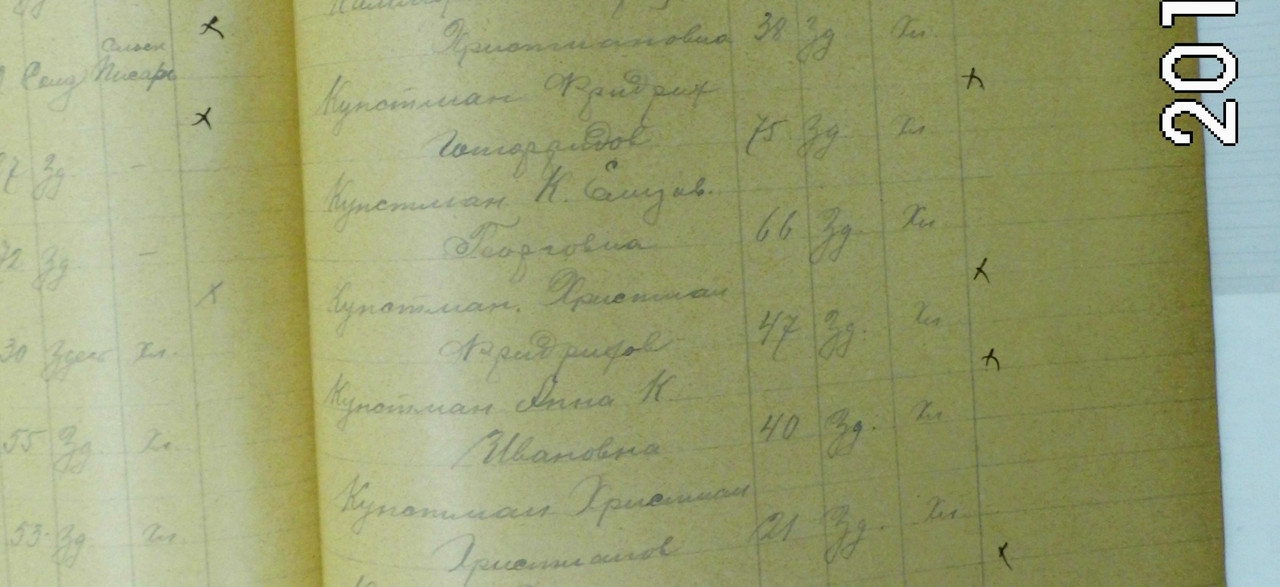 Сельск
Солд Писарь
7 Зд. -
72 Зд -
30 Здес Хл.
55 Зд Хл.
53 Зд Хл.
Християновна 38 Зд. Хл.
Кунстман Фридрих
Готфридов 75 Зд. Хл.
Кунстман К. Елизав.
Георговна 66 Зд. Хл
Кунстман. Християн
Фридрихов 47 Зд. Хл.
Кунстман Анна К
Ивановна 40 Зд. Хл
Кунстман Християн
Християнов 21 Зд. Хл.
201